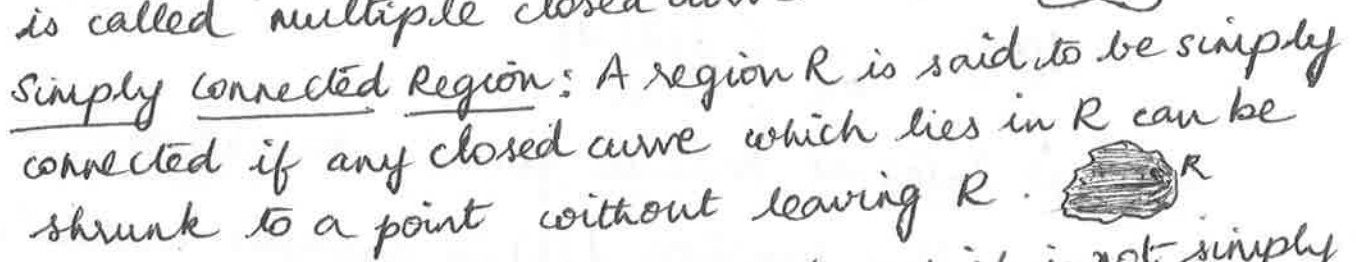 is called multiple closed curve
Simply Connected Region: A region R is said to be simply
connected if any closed curve which lies in R can be
shrunk to a point without leaving R. R
is not simply